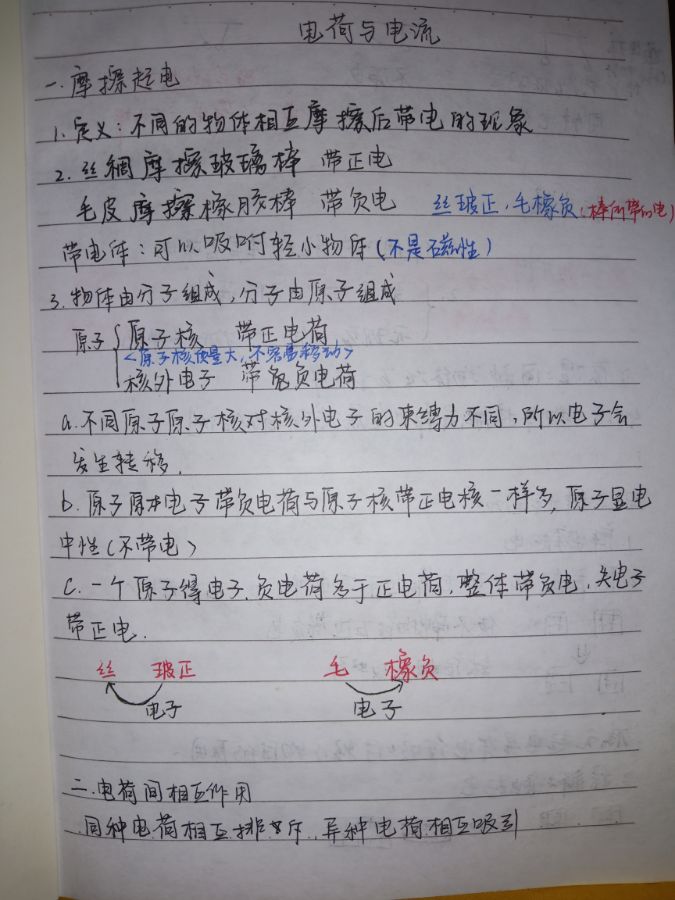 电荷与电流
一.摩擦起电
1.定义:不同的物体相互摩擦后带电的现象
2.丝绸摩擦玻璃棒 带正电
毛皮摩擦橡胶棒 带负电 丝玻正,毛橡负,棒所带的电)
带电体:可以吸附轻小物体(不是磁性)
3.物体由分子组成,分子由原子组成
原子{原子核 带正电荷
<原子核质量大,不容易移动>
核外电子 带负电荷
a.不同原子原子核对核外电子的束缚力不同,所以电子会
发生转移.
b.原子原本电子带负电荷与原子核带正电核一样多,原子显电
中性(不带电)
c.一个原子得电子.负电荷多于正电荷,整体带负电,失电子
带正电.
丝 玻正 毛 橡负
电子 电子
二.电荷间相互作用
同种电荷相互排斥.异种电荷相互吸引